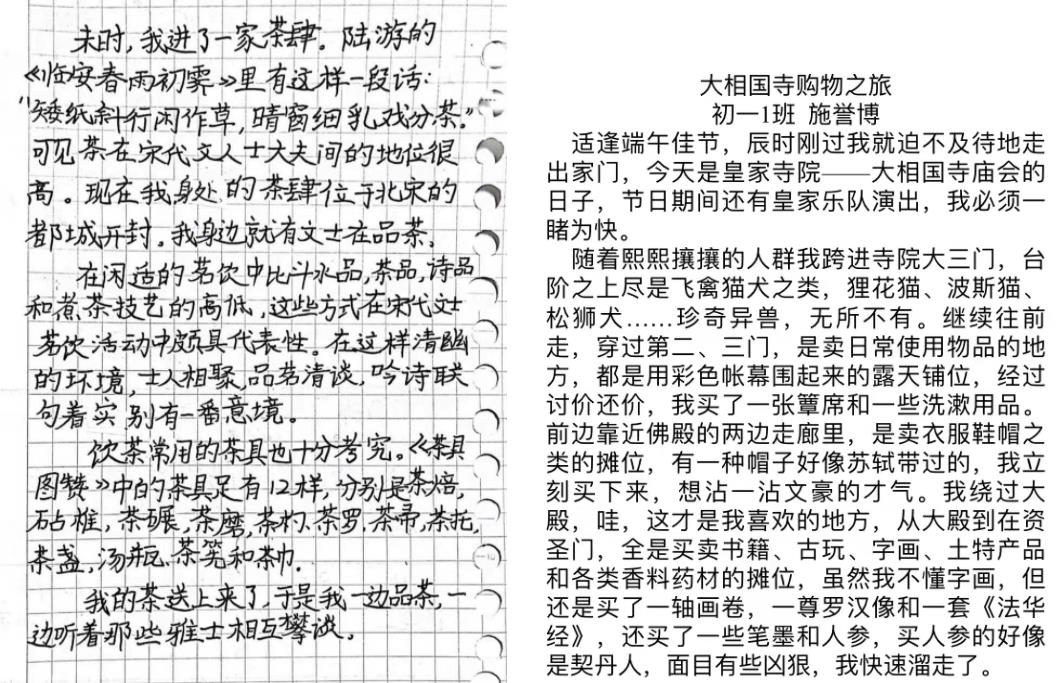 未时，我进了一家茶肆。陆游的
《临安春雨初霁》里有这样一段话：
"矮纸斜行闲作草，晴窗细乳戏分茶。"
可见茶在宋代文人士大夫间的地位很
高。现在我身处的茶肆位于北宋的
都城开封。我身边就有文士在品茶。
在闲适的茗饮中比斗水品，茶品，诗品
和煮茶技艺的高低，这些方式在宋代文士
茗饮活动中颇具代表性。在这样清幽
的环境，士人相聚，品茗清谈，吟诗联
句着实别有一番意境。
饮茶常用的茶具也十分考究。《茶具
图赞》中的茶具足有12样，分别是茶焙，
砧椎，茶碾，茶磨，茶杓，茶罗，茶帚，茶托，
茶盏，汤瓶，茶筅和茶巾。
我的茶送上来了，于是我一边品茶，一
边听着那些雅士相互攀谈。
大相国寺购物之旅
初一1班 施誉博
适逢端午佳节，辰时刚过我就迫不及待地走
出家门，今天是皇家寺院——大相国寺庙会的
日子，节日期间还有皇家乐队演出，我必须一
睹为快。
随着熙熙攘攘的人群我跨进寺院大三门，台
阶之上尽是飞禽猫犬之类，狸花猫、波斯猫、
松狮犬……珍奇异兽，无所不有。继续往前
走，穿过第二、三门，是卖日常使用物品的地
方，都是用彩色帐幕围起来的露天铺位，经过
讨价还价，我买了一张簟席和一些洗漱用品。
前边靠近佛殿的两边走廊里，是卖衣服鞋帽之
类的摊位，有一种帽子好像苏轼带过的，我立
刻买下来，想沾一沾文豪的才气。我绕过大
殿，哇，这才是我喜欢的地方，从大殿到在资
圣门，全是买卖书籍、古玩、字画、土特产品
和各类香料药材的摊位，虽然我不懂字画，但
还是买了一轴画卷，一尊罗汉像和一套《法华
经》，还买了一些笔墨和人参，买人参的好像
是契丹人，面目有些凶狠，我快速溜走了。